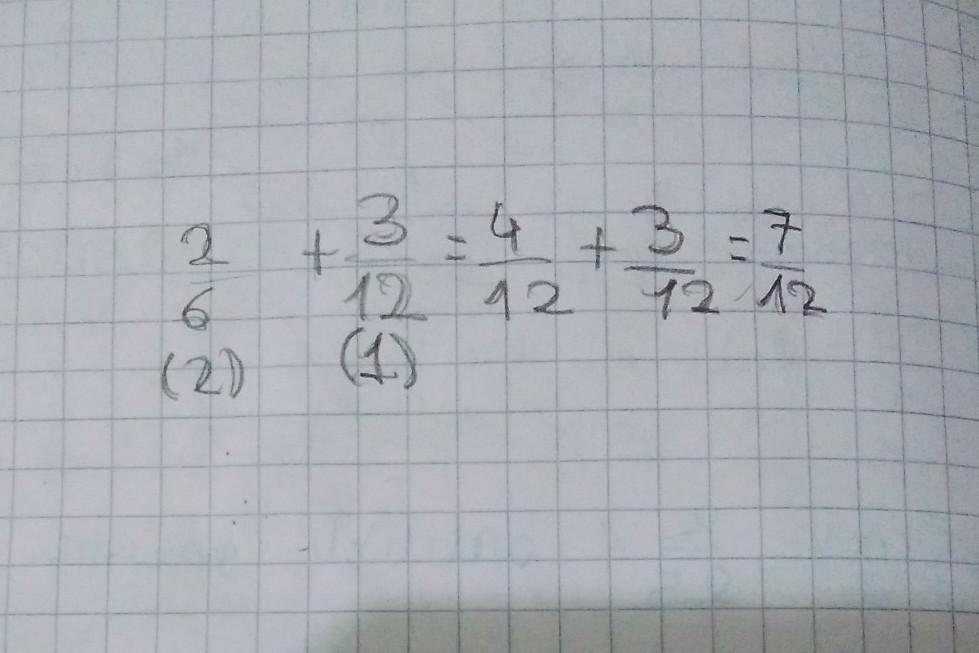 2/6 + 3/12 = 4/12 + 3/12 = 7/12
(2) (1)